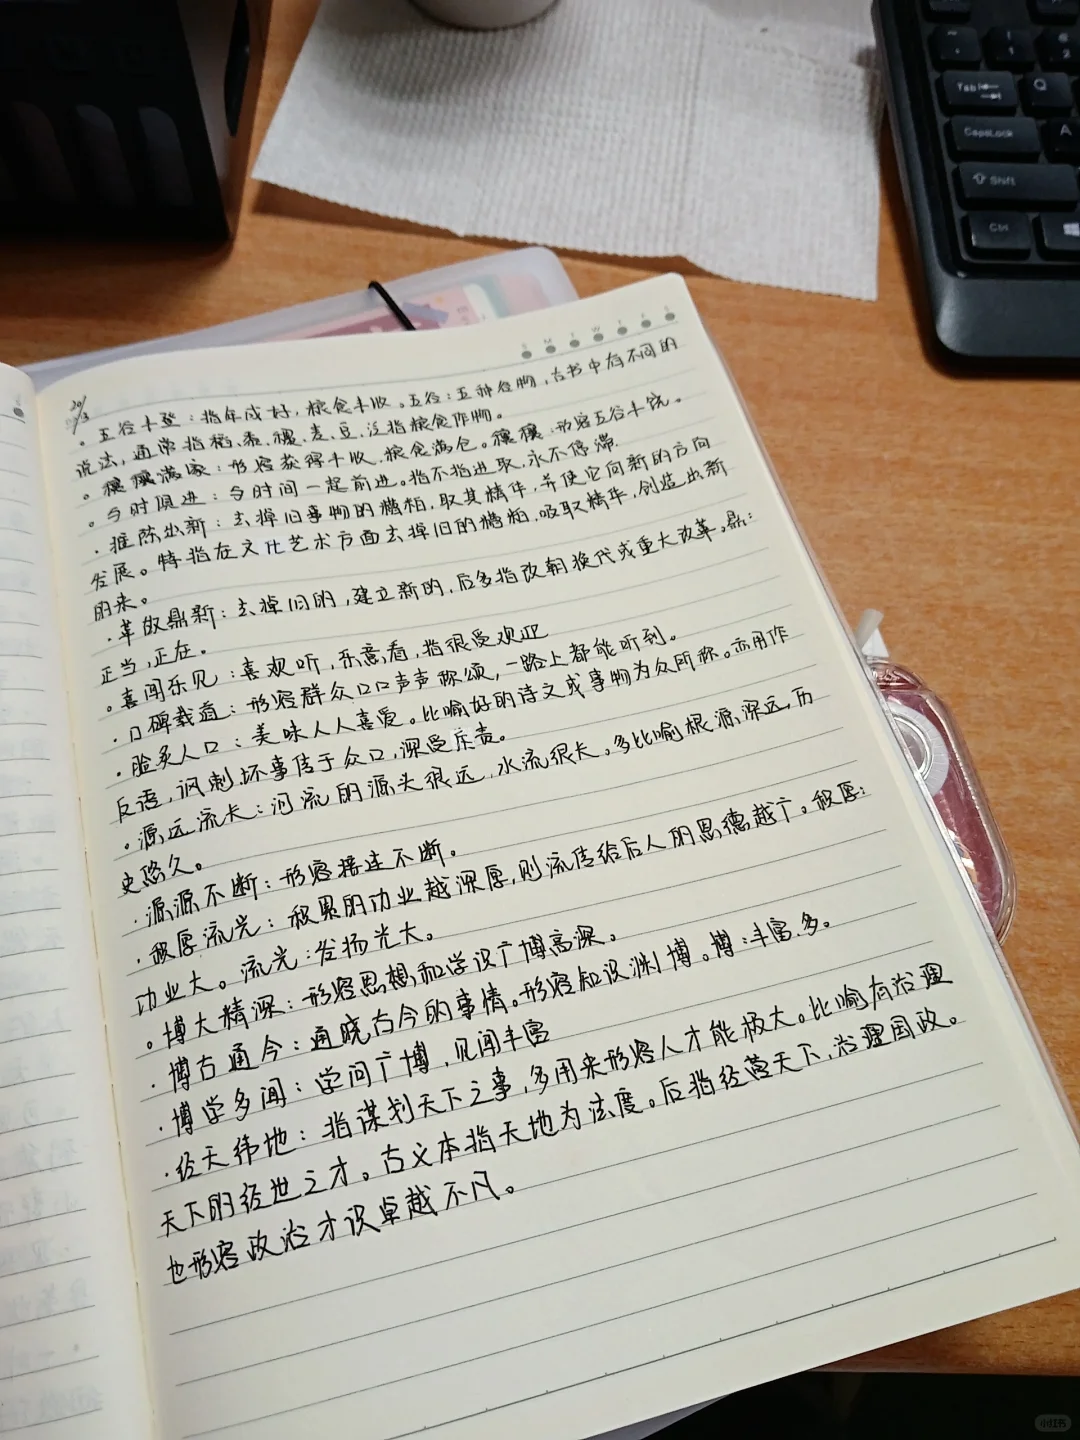 S M T W T F S
20/3
。五谷丰登：指年成好，粮食丰收。五谷：五种谷物，古书中有不同的
说法，通常指稻、黍、稷、麦、豆，泛指粮食作物。
。穰穰满家：形容获得丰收，粮食满仓。穰穰：形容五谷丰饶。
。与时俱进：与时间一起前进。指不指进取，永不停滞.
·推陈出新：去掉旧事物的糟粕，取其精华，并使它向新的方向
发展。特指在文化艺术方面去掉旧的糟粕，吸取精华，创造出新
的来。
·革故鼎新：去掉旧的，建立新的，后多指改朝换代或重大改革。鼎：
正当，正在。
。喜闻乐见：喜欢听，乐意看，指很受欢迎
·口碑载道：形容群众口口声声称颂，一路上都能听到。
·脍炙人口：美味人人喜爱。比喻好的诗文或事物为众所称。亦用作
反语，讽刺坏事传于众口，深受乐责。
·源远流长：河流的源头很远，水流很长。多比喻根源深远，历
史悠久。
·源源不断：形容接连不断。
·积厚流光：积累的功业越深厚，则流传给后人的恩德越广。积厚：
功业大。流光：发扬光大。
。博大精深：形容思想和学识广博高深。
·博古通今：通晓古今的事情。形容知识渊博。博：丰富.多。
·博学多闻：学问广博，见闻丰富
·经天纬地：指谋划天下之事，多用来形容人才能极大。比喻有治理
天下的经世之才。古义本指天地为法度。后指经营天下，治理国政。
也形容政治才识卓越不凡。
Tab
Q
CapsLock
A
Shift
Ctrl
小红书